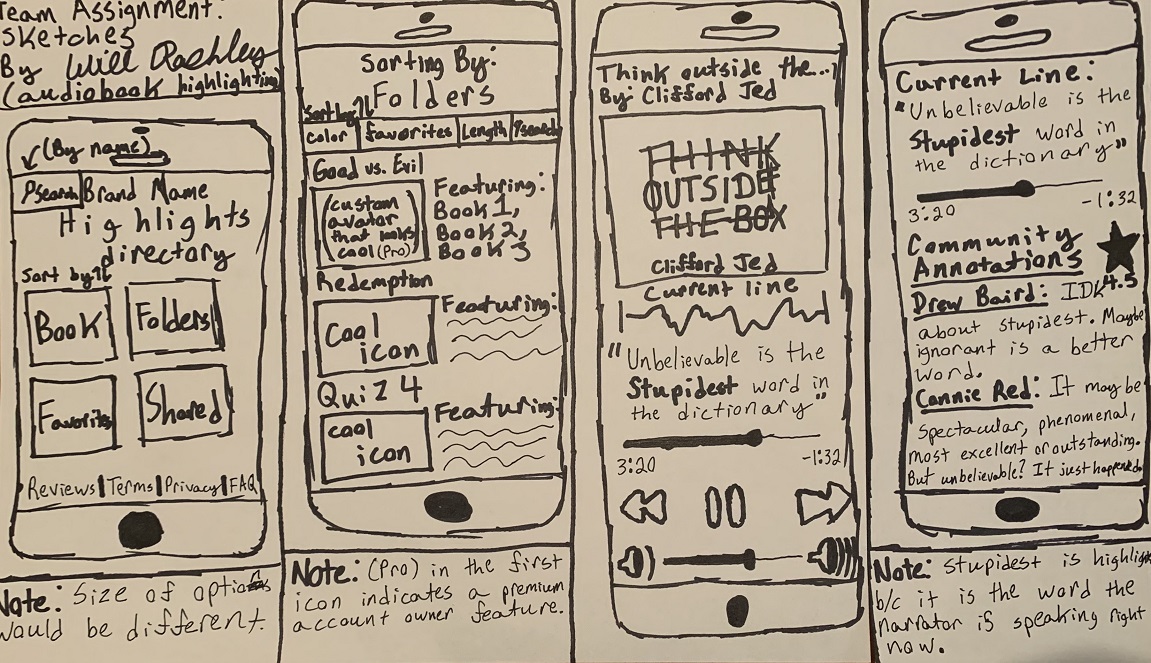 Team Assignment:
Sketches
By Will Rashley
(audiobook highlighting)
(By name)
search
Brand Name
Highlights
directory
Sort by
Book
Folders
Favorites
Shared
Reviews | Terms | Privacy | FAQ
Note: Size of options
would be different.
Sorting By:
Folders
Sort by
color | favorites | Length | search
Good vs. Evil
(custom
avatar
that looks
cool (Pro))
Featuring:
Book 1,
Book 2,
Book 3
Redemption
Cool
icon
Featuring:
Quiz 4
cool
icon
Featuring:
Note: (Pro) in the first
icon indicates a premium
account owner feature.
Think outside the...
By: Clifford Jed
THINK
OUTSIDE
THE BOX
Clifford Jed
Current line
"Unbelievable is the
Stupidest word in
the dictionary"
3:20 -1:32
Current Line:
"Unbelievable is the
Stupidest word in
the dictionary"
3:20 -1:32
Community
Annotations
4.5
Drew Baird: IDK
about stupidest. Maybe
ignorant is a better
word.
Connie Red: It may be
spectacular, phenomenal,
most excellent or outstanding.
But unbelievable? It just happened.
Note: Stupidest is
b/c it is the word the
narrator is speaking right
now.